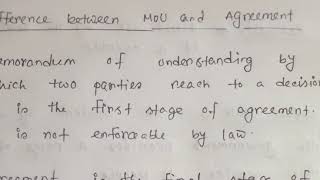 fference between MOU and Agreement
emorandum of understanding by
hich two parties reach to a decision
is the first stage of agreement.
is not enforceable by law.
reement is the final stage of